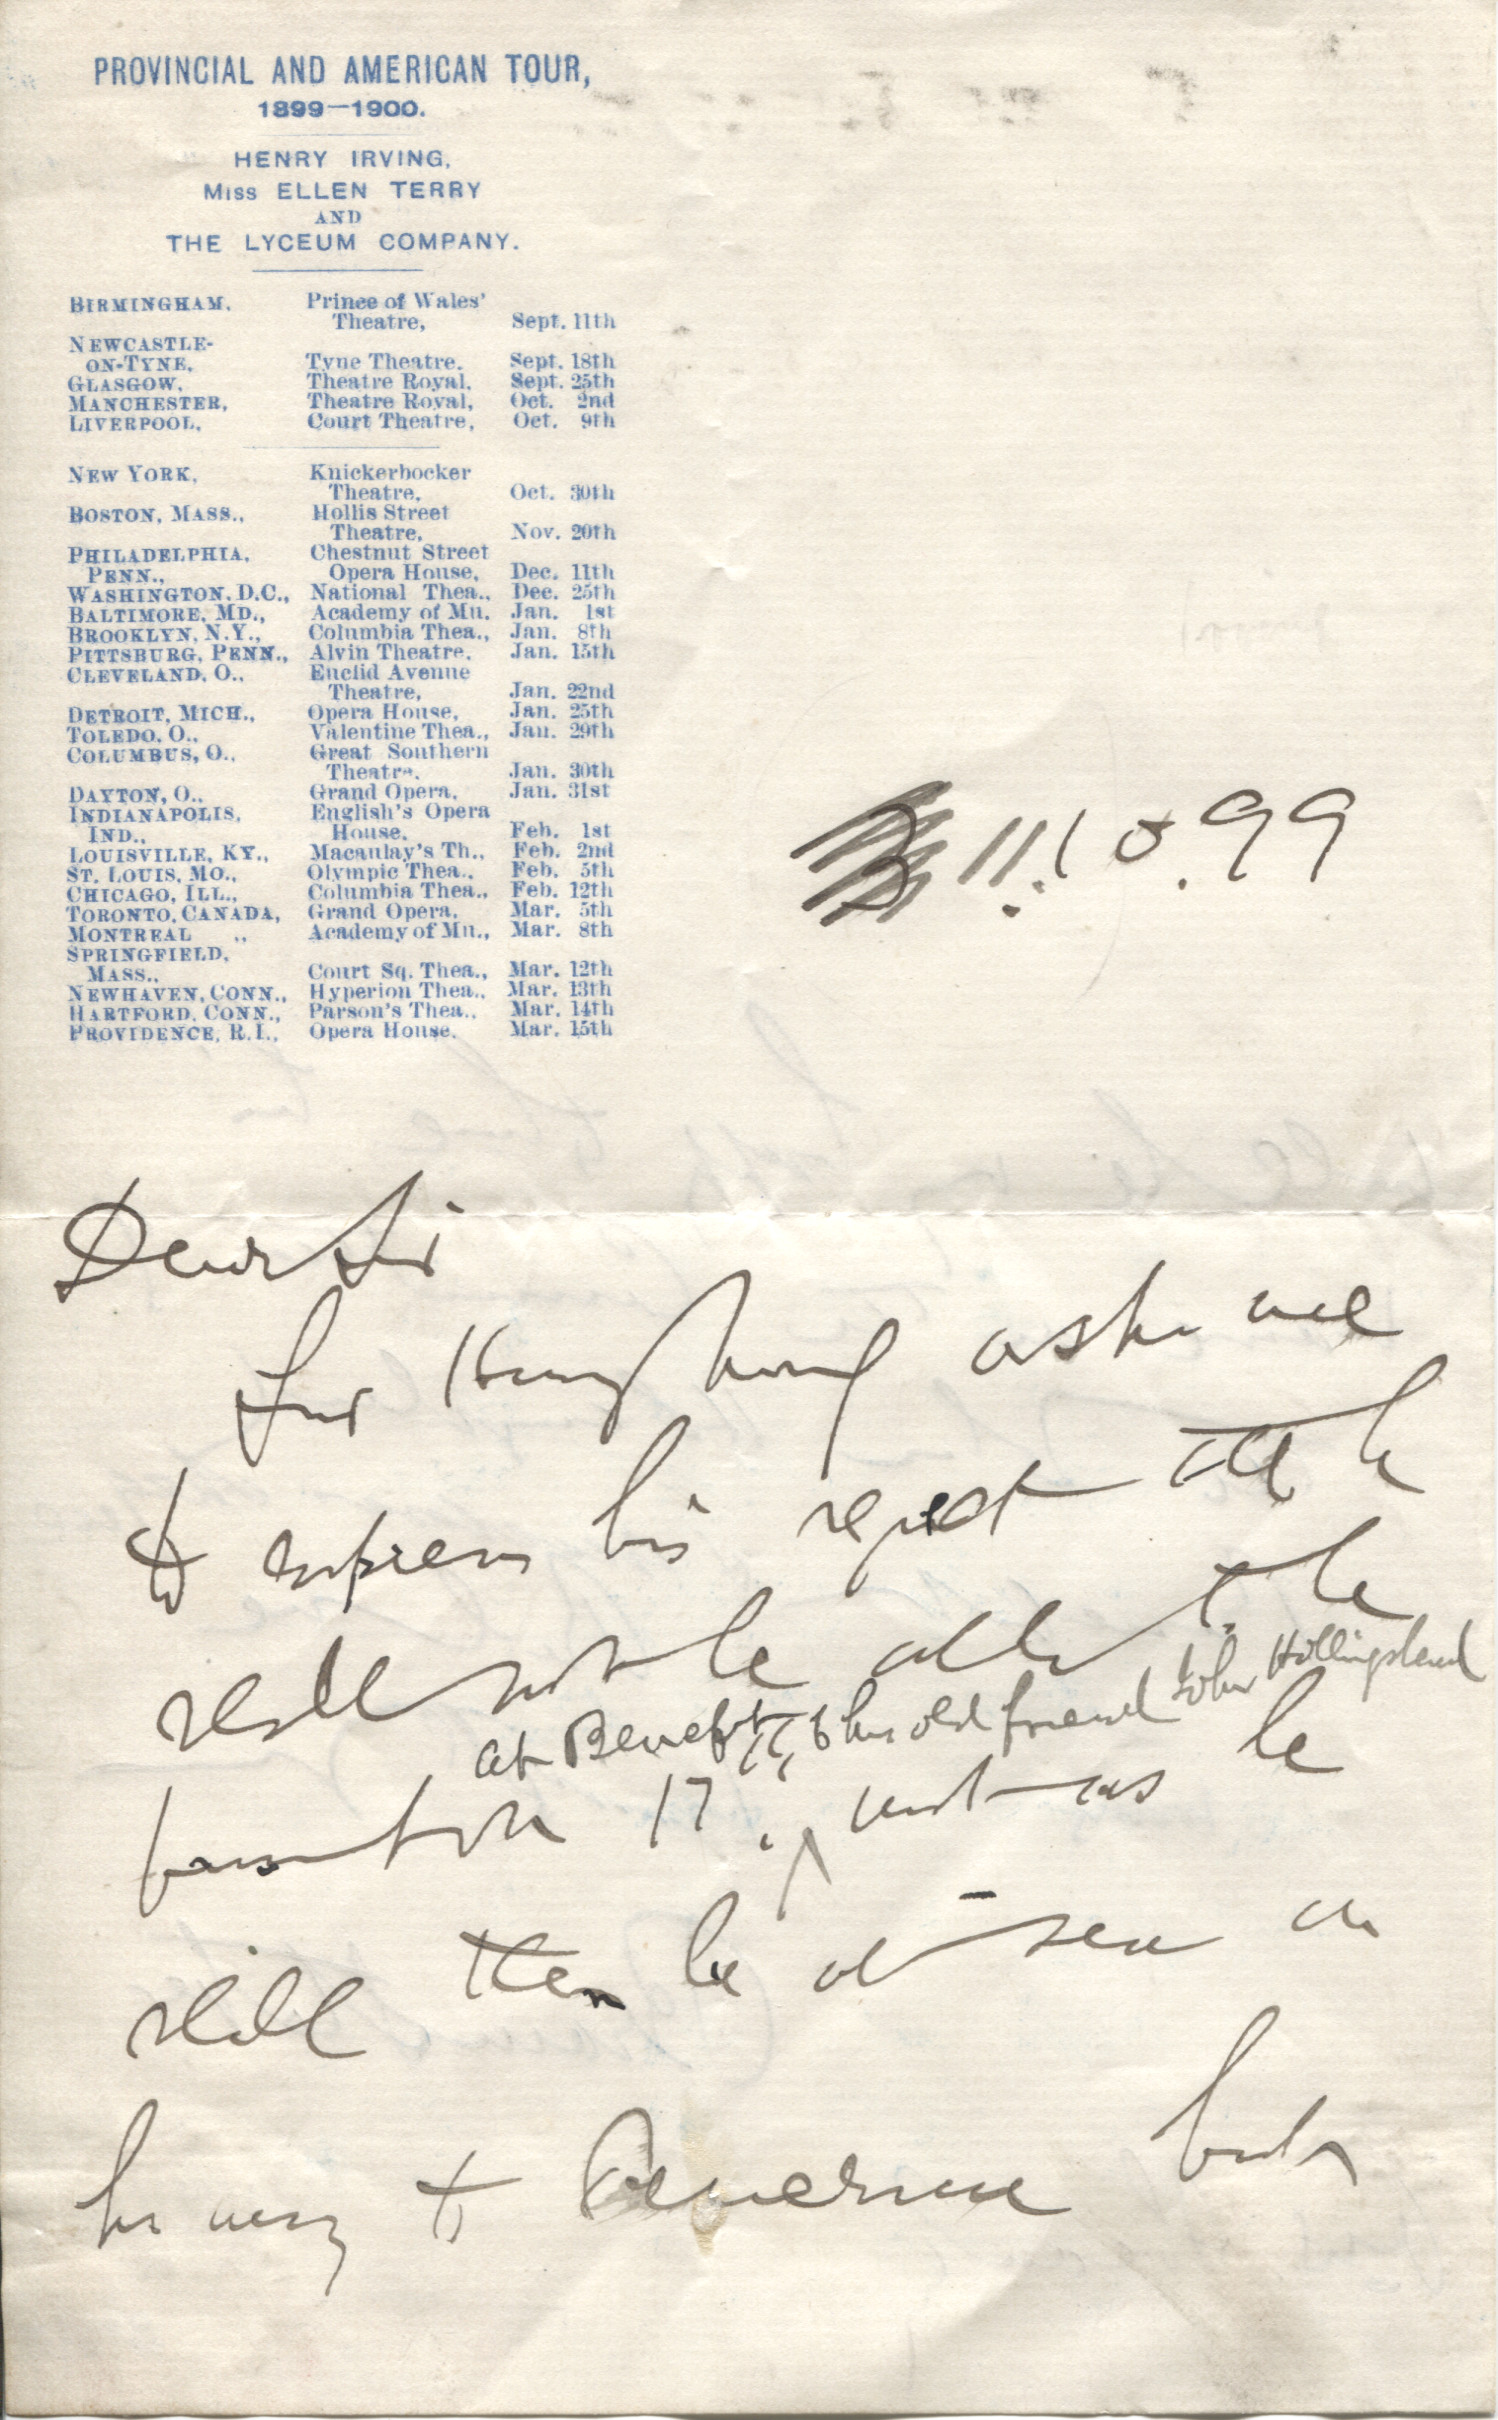 PROVINCIAL AND AMERICAN TOUR,
1899—1900.
HENRY IRVING,
Miss ELLEN TERRY
AND
THE LYCEUM COMPANY.
BIRMINGHAM, Prince of Wales'
Theatre, Sept. 11th
NEWCASTLE-
ON-TYNE, Tyne Theatre, Sept. 18th
GLASGOW, Theatre Royal, Sept. 25th
MANCHESTER, Theatre Royal, Oct. 2nd
LIVERPOOL, Court Theatre, Oct. 9th
NEW YORK, Knickerbocker
Theatre, Oct. 30th
BOSTON, MASS., Hollis Street
Theatre, Nov. 20th
PHILADELPHIA, Chestnut Street
PENN., Opera House, Dec. 11th
WASHINGTON, D.C., National Thea., Dec. 25th
BALTIMORE, MD., Academy of Mu. Jan. 1st
BROOKLYN, N.Y., Columbia Thea., Jan. 8th
PITTSBURG, PENN., Alvin Theatre, Jan. 15th
CLEVELAND, O., Euclid Avenue
Theatre, Jan. 22nd
DETROIT, MICH., Opera House, Jan. 25th
TOLEDO, O., Valentine Thea., Jan. 29th
COLUMBUS, O., Great Southern
Theatre, Jan. 30th
DAYTON, O., Grand Opera, Jan. 31st
INDIANAPOLIS, English's Opera
IND., House, Feb. 1st
LOUISVILLE, KY., Macaulay's Th., Feb. 2nd
ST. LOUIS, MO., Olympic Thea., Feb. 5th
CHICAGO, ILL., Columbia Thea., Feb. 12th
TORONTO, CANADA, Grand Opera, Mar. 5th
MONTREAL ,, Academy of Mu., Mar. 8th
SPRINGFIELD,
MASS., Court Sq. Thea., Mar. 12th
NEWHAVEN, CONN., Hyperion Thea., Mar. 13th
HARTFORD, CONN., Parson's Thea., Mar. 14th
PROVIDENCE, R.I., Opera House, Mar. 15th
11.10.99
Dear Sir
Sir Henry Irving asks me
to express his regret that he
will not be able to be
at Benefit to his old friend John Hollingshead
present on 17th, inst as he
will then be at sea on
his way to America but